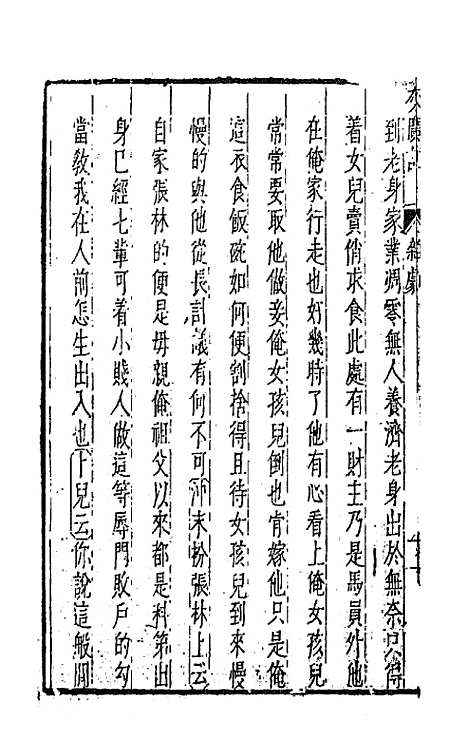 灰闌記 雜劇
到老身家業凋零無人養濟老身出於無奈只得
着女兒賣俏求食此處有一財主乃是馬員外他
在俺家行走也好幾時了他有心看上俺女孩兒
常常要取他做妾俺女孩兒倒也肯嫁他只是俺
這衣食飯碗如何便割捨得且待女孩兒到來慢
慢的與他從長計議有何不可冲末扮張林上云
自家張林的便是毋親俺祖父以來都是科第出
身已經七輩可着小賤人做這等辱門敗户的勾
當敎我在人前怎生出入也卜兒云你說這般閒